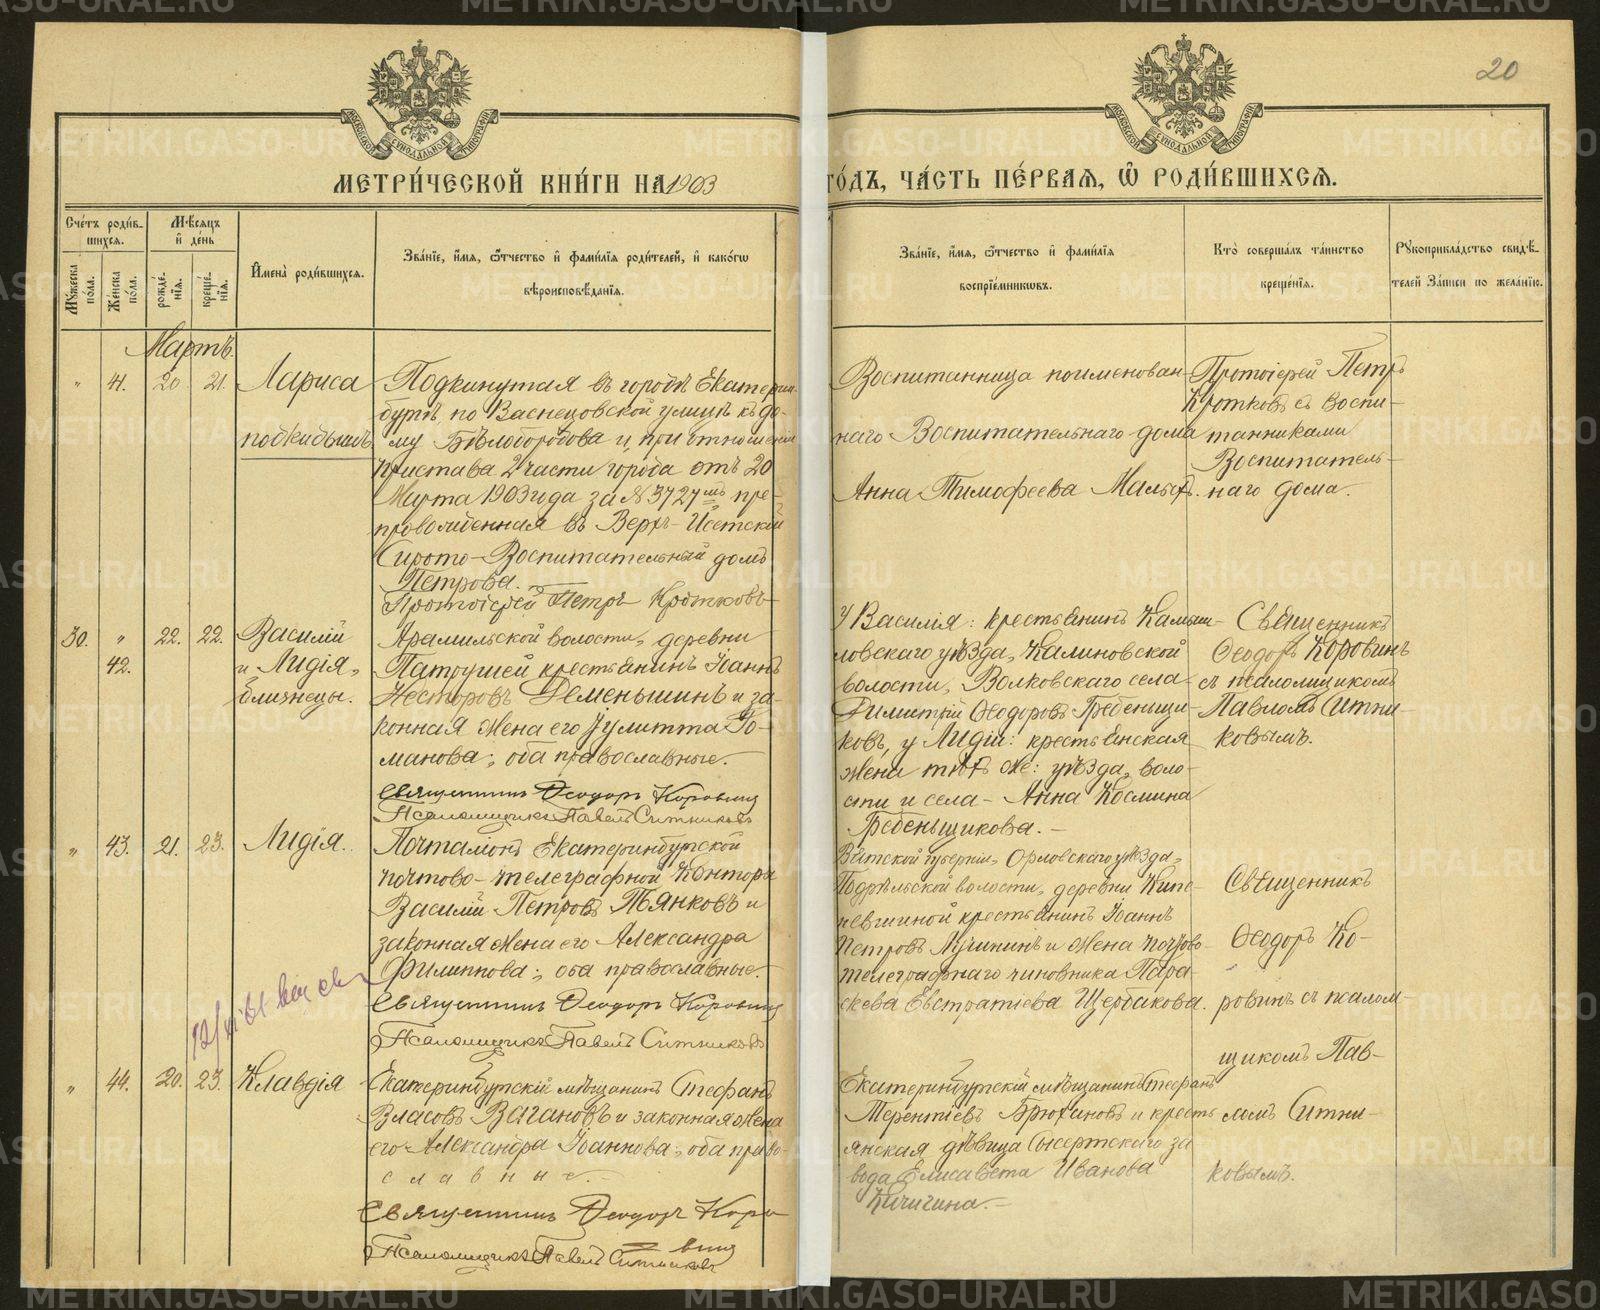 METRIKI.GASO-URAL.RU
20
МЕТРИ́ЧЕСКОЙ КНИ́ГИ НА 1903
ГО́ДЪ, ЧА́СТЬ ПЕ́РВАЯ, Ѡ РОДИ́ВШИХСЯ.
Сче́тъ роди́в-
шихся.
Мꙋ́жеска пола.
Же́нска пола.
Мѣ́сяцъ
и́ де́нь
рожде́нїя.
креще́нїя.
И҆мена̀ роди́вшихся.
Зва́нїе, и҆́мя, ѻ҆́тчество и҆ фами́лїя роди́телей, и҆ како́гѡ
вѣроисповѣ́данїя.
Зва́нїе, и҆́мя, ѻ҆́тчество и҆ фами́лїя
воспрїе́мникѡвъ.
Кто̀ соверша́лъ та́инство
креще́нїя.
Рꙋкоприкла́дство свидѣ́-
телей за́писи по жела́нїю.
Мартъ.
" 41. 20 21. Лариса
подкидышъ
Подкинутая въ городѣ Екатерин-
бургѣ, по Васнецовской улицѣ къ до-
му Бѣлобородова и, при отношеніи
Пристава 2 части города отъ 20
Марта 1903 года за № 3727мъ, пре-
провожденная въ Верхъ-Исетскій
Сирото-Воспитательный домъ
Петрова.
Протоіерей Петръ Кротковъ
Воспитанница поименован-
наго Воспитательнаго дома
Анна Тимофеева Малыхъ.
Протоіерей Петръ
Кротковъ съ воспи-
танниками
Воспитатель-
наго дома.
30. " 22. 22. Василій
42. и Лидія,
близнецы.
Арамильской волости, деревни
Патрушей крестьянинъ Іоаннъ
Несторовъ Деменьшинъ и за-
конная жена его Іулитта Ро-
манова; оба православные.
Священникъ Ѳеодоръ Коровинъ
Псаломщикъ Павелъ Ситниковъ
У Василія: крестьянинъ Камыш-
ловскаго уѣзда, Калиновской
волости, Волковскаго села
Димитрій Ѳеодоровъ Гребенщи-
ковъ, у Лидіи: крестьянская
жена тѣхъ же: уѣзда, воло-
сти и села - Анна Космина
Гребеньщикова.
Священникъ
Ѳеодоръ Коровинъ
съ псаломщикомъ
Павломъ Ситни-
ковымъ.
" 43. 21. 23. Лидія.
Почталіонъ Екатеринбургской
почтово-телеграфной Конторы
Василій Петровъ Тянковъ и
законная жена его Александра
Филиппова; оба православные.
Священникъ Ѳеодоръ Коровинъ
Псаломщикъ Павелъ Ситниковъ
Вятской губерніи, Орловскаго уѣзда,
Подрѣльской волости, деревни
крестьянинъ Іоаннъ
Петровъ Лучининъ и жена почтово-
телеграфнаго чиновника Пара-
скева Евстратіева Щербакова.
Священникъ
Ѳеодоръ Ко-
ровинъ съ псалом-
щикомъ Пав-
ломъ Ситни-
ковымъ.
" 44. 20. 23. Клавдія
Екатеринбургскій мѣщанинъ Стефанъ
Власовъ Вагановъ и законная жена
его Александра Іоаннова; оба право-
славные.
Священникъ Ѳеодоръ Коро
винъ
Псаломщикъ Павелъ Ситниковъ
Екатеринбургскій мѣщанинъ Стефанъ
Терентіевъ Брюхановъ и кресть
янская дѣвица Сысертскаго за
вода Елисавета Иванова
Кичигина.